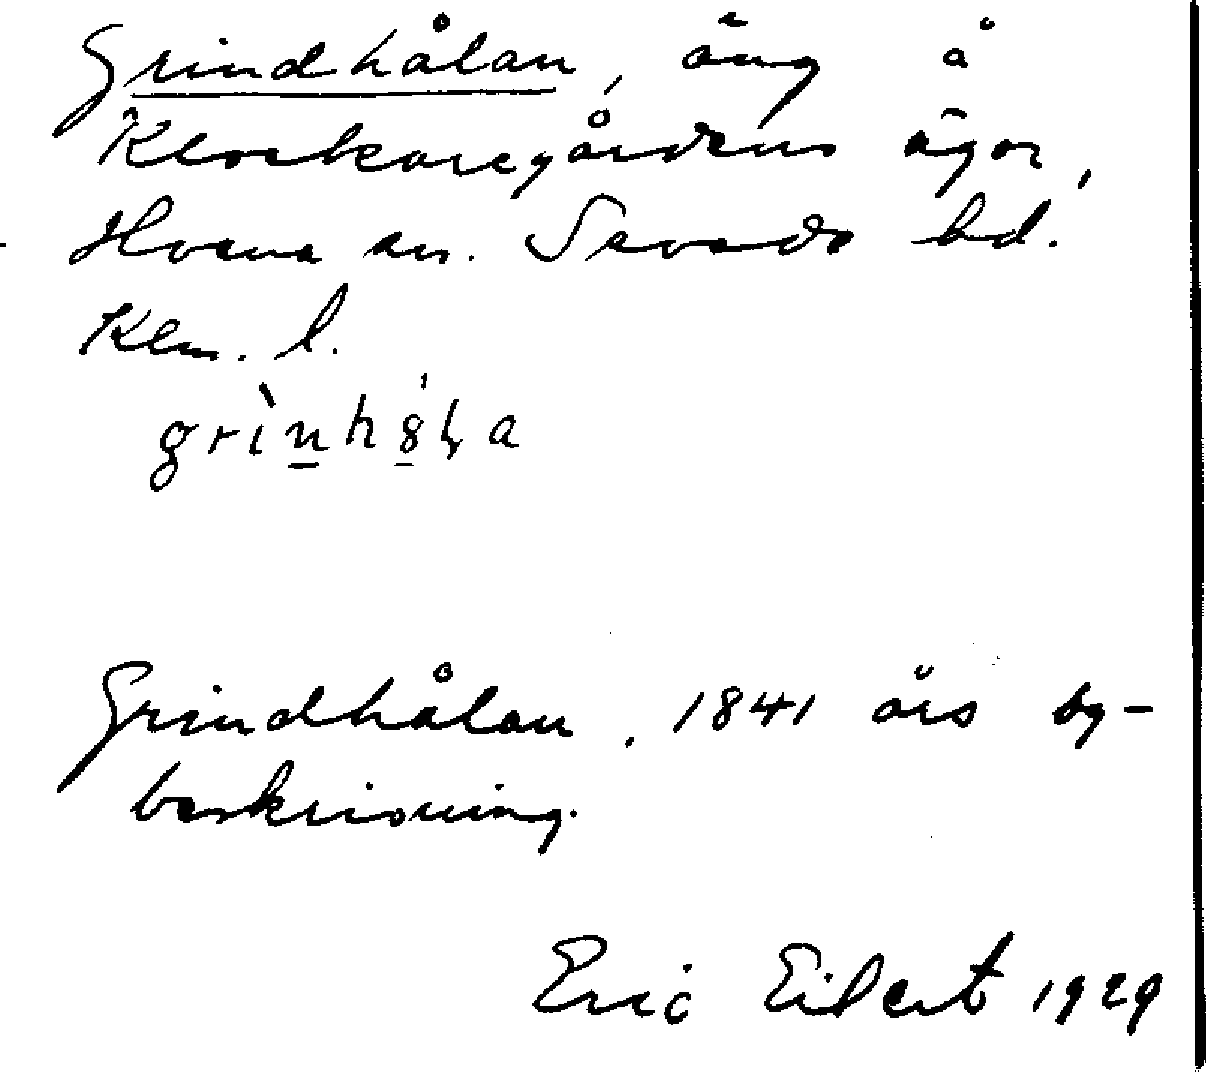 Grindhålan, äng å
Klockaregårdens ägor,
Hvena sn. Sevede hd.
Klm. l.
grìn̲hȣ̲́ɬa
Grindhålan. 1841 års by-
beskrivning.
Eric Eilert 1929